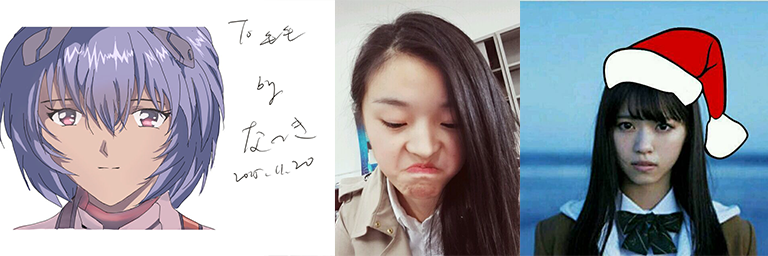 To 毛毛
by
なつき
2015.11.20